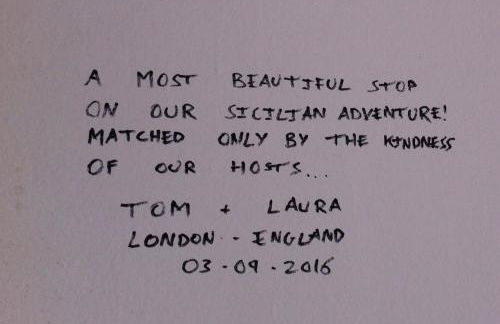 A MOST BEAUTIFUL STOP
ON OUR SICILIAN ADVENTURE!
MATCHED ONLY BY THE KINDNESS
OF OUR HOSTS...
TOM + LAURA
LONDON - ENGLAND
03-09-2016